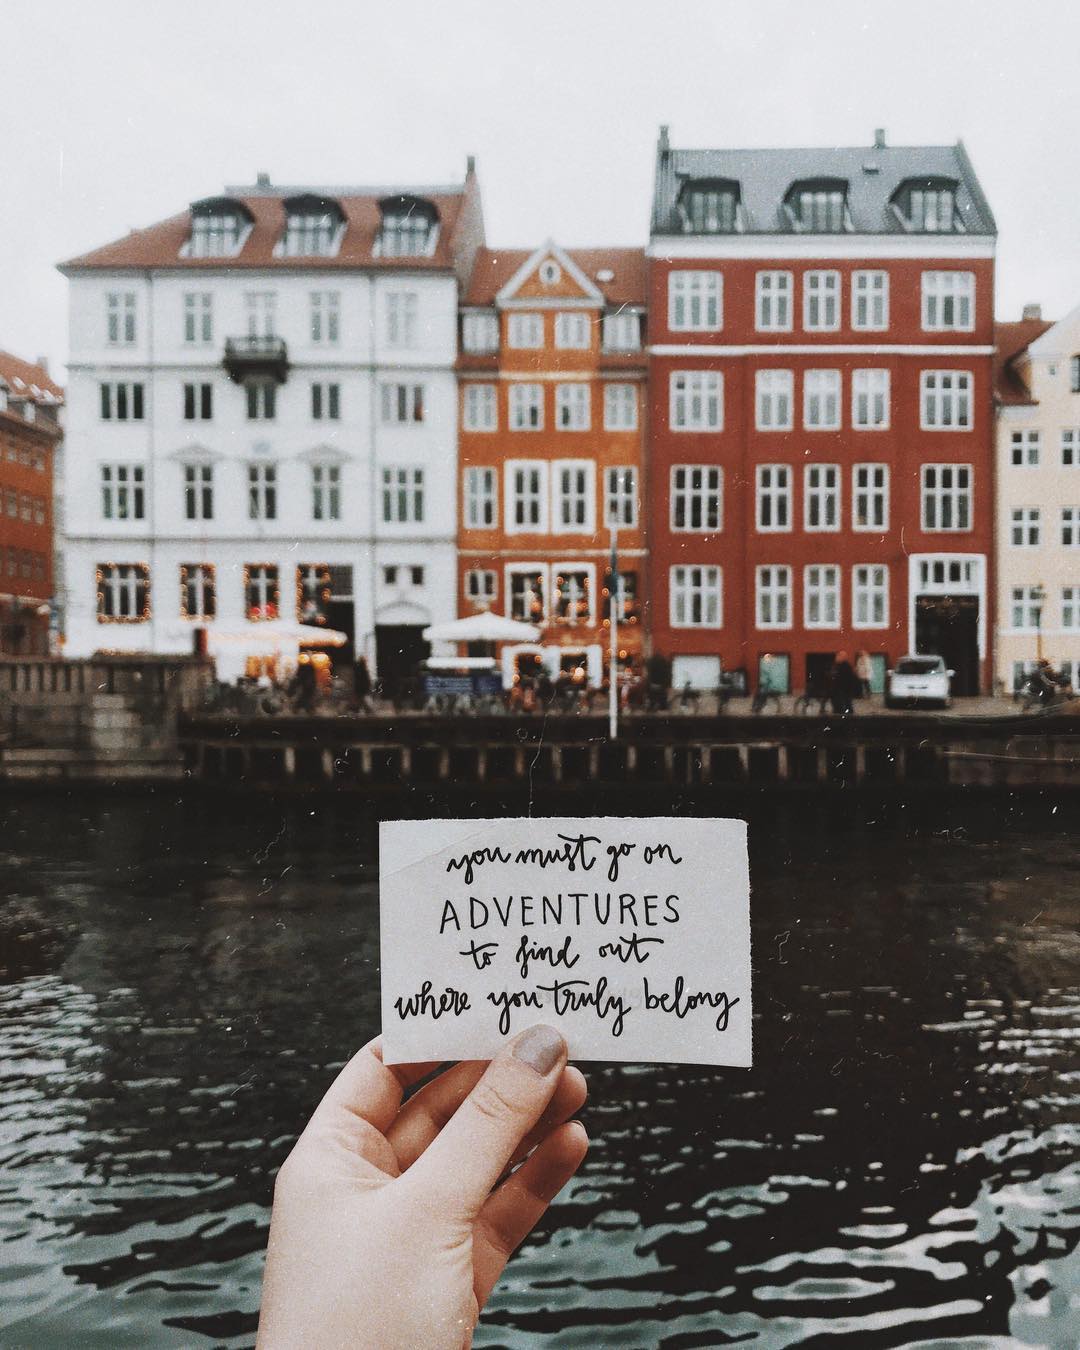 you must go on
ADVENTURES
to find out
where you truly belong